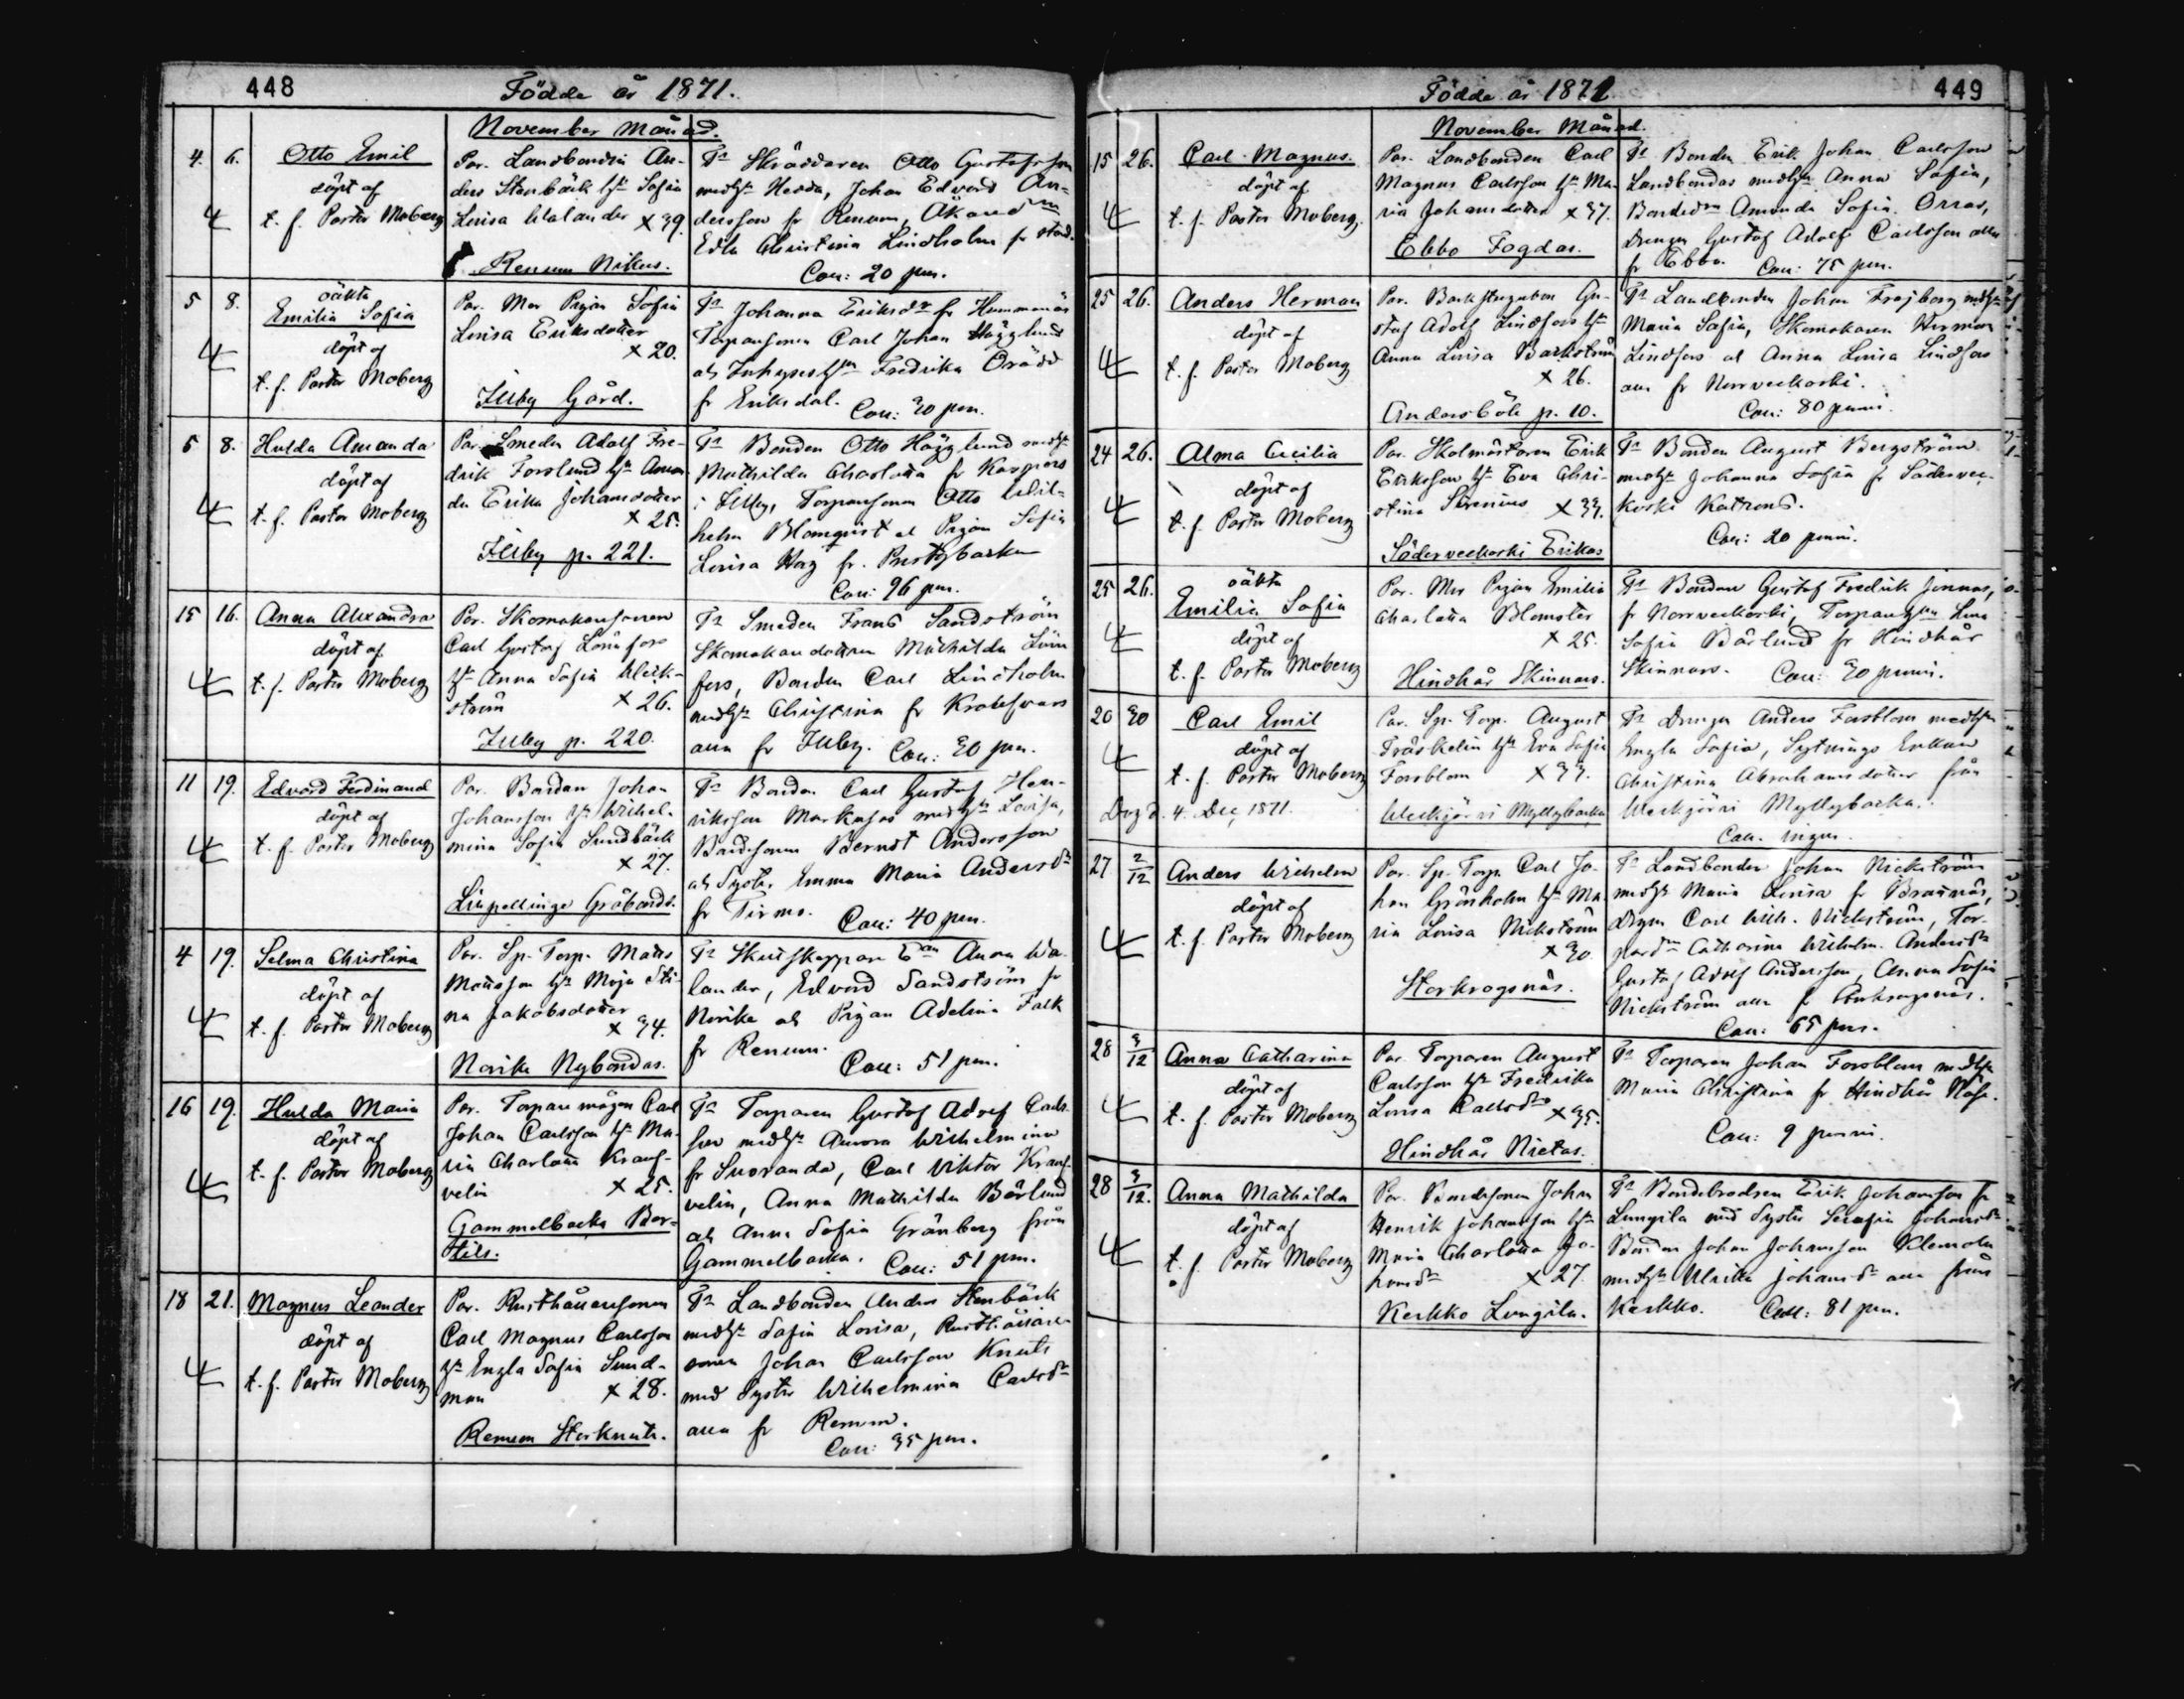 448 Födde år 1871.
November Månad.
4. 6. Otto Emil
döpt af
t. f. Pastor Moberg
Par. Landbonden An-
ders Stenbäck hst Sofia
Lovisa Walander x 39.
Renum Nikus.
Ts Skräddaren Otto Gustafsson
medhst Hedda, Johan Edvard An-
dersson fr Renum,
Edla Christina Lindholm fr stad.
Coll: 20 pen.
5 8. oäkta
Emilia Sofia
döpt af
t. f. Pastor Moberg
Par. Mor Pigan Sofia
Lovisa Eriksdotter
x 20.
Illby Gård.
Ts Johanna Eriksdr fr Hummanäs
Torparsonen Carl Johan Hägglund
och Fredrika
fr Eriksdal. Coll: 30 pen.
5 8. Hulda Amanda
döpt af
t. f. Pastor Moberg
Par. Smeden Adolf Fre-
drik Forslund hst Aman-
da Erika Johansdotter
x 25.
Illby p. 221.
Ts Bonden Otto Hägglund medhst
Mathilda Charlotta fr Kaspers
i Illby, Torparsonen Otto Wil-
helm Blomqvist och Pigan Sofia
Lovisa fr.
Coll: 96 pen.
15 16. Anna Alexandra
döpt af
t. f. Pastor Moberg
Par. Skomakarsonen
Carl Gustaf Lönnfors
hst Anna Sofia Weck-
ström x 26.
Illby p. 220.
Ts Smeden Frans Sandström
Skomakardottren Mathilda Lönn
fors, Bonden Carl Lindholm
medhst Christina fr
alla fr Illby. Coll: 30 pen.
11 19. Edvard Ferdinand
döpt af
t. f. Pastor Moberg
Par. Bonden Johan
Johansson hst Wilhel-
mina Sofia Sundbäck
x 27.
Gröbonds.
Ts Bonden Carl Gustaf Hen-
riksson Markusas medhst Lovisa,
Bondsonen Berndt Andersson
och Syster Emma Maria Andersdr
fr Tirmo. Coll: 40 pen.
4 19. Selma Christina
döpt af
t. f. Pastor Moberg
Par. Sp. Torp. Matts
Mattsson hst Maja Sti-
na Jakobsdotter
x 34.
Norike Nybondas.
Ts Skutskeppare Anna Wa-
lander, Edvard Sandström fr
Norike och Pigan Adelina Falk
fr Renum. Coll: 51 pen.
16 19. Hulda Maria
döpt af
t. f. Pastor Moberg
Par. Torparemågen Carl
Johan Carlsson hst Ma-
ria Charlotta Krauf-
velin x 25.
Gammelbacka Ber-
tils.
Ts Torparen Gustaf Adolf Carls-
son medhst Aurora Wilhelmina
fr Suoranda, Carl Viktor Krauf-
velin, Anna Mathilda Bärlund
och Anna Sofia Grönberg från
Gammelbacka. Coll: 51 pen.
18 21. Magnus Leander
döpt af
t. f. Pastor Moberg
Par. Rusthållarsonen
Carl Magnus Carlsson
hst Engla Sofia Sund-
man x 28.
Renum Storknuts.
Ts Landbonden Anders Stenbäck
medhst Sofia Lovisa, Rusthållare-
sonen Johan Carlsson Knuts
med Syster Wilhelmina Carlsdr
alla fr Renum.
Coll: 35 pen.
Födde år 1871 449
November Månad.
15 26. Carl Magnus.
döpt af
t. f. Pastor Moberg.
Par. Landbonden Carl
Magnus Carlsson hst Ma-
ria Johansdotter x 37.
Ebbo Fogdas.
Ts Bonden Erik Johan Carlsson
Landbondas medhst Anna Sofia,
Amanda Sofia Orras,
Drengen Gustaf Adolf Carlsson alla
fr Ebbo. Coll: 75 pen.
25 26. Anders Herman
döpt af
t. f. Pastor Moberg
Par. Backstugubon Gu-
staf Adolf Lindfors hst
Anna Lovisa Backström
x 26.
Andersböle p. 10.
Ts Landbonden Johan Frejborg medhst
Maria Sofia, Skomakaren Herman
Lindfors och Anna Lovisa Lindfors
alla fr Norrveckoski.
Coll: 80 penni.
24 26. Alma Cecilia
döpt af
t. f. Pastor Moberg
Par. Skolmästaren Erik
Eriksson hst Eva Chri-
stina Serenius x 39.
Söderveckoski Erikas
Ts Bonden August Bergström
medhst Johanna Sofia fr Södervec-
koski Katrens.
Coll: 20 penni.
25 26. oäkta
Emilia Sofia
döpt af
t. f. Pastor Moberg
Par. Mor Pigan Emilia
Charlotta Blomster
x 25.
Hindhår Skinnars.
Ts Bonden Gustaf Fredrik Jonnas,
fr Norrveckoski, Lena
Sofia Bärlund fr Hindhår
Skinnars. Coll: 30 penni.
20 30 Carl Emil
döpt af
t. f. Pastor Moberg
4. Dec 1871.
Par. Sp. Torp. August
Träskelin hst Eva Sofia
Forsblom x 33.
Weckjärvi Myllybacka
Ts Drengen Anders Forsblom medhst
Engla Sofia, Sytnings Enkan
Christina Abrahamsdotter från
Weckjärvi Myllybacka.
Coll. ingen.
27 2/12 Anders Wilhelm
döpt af
t. f. Pastor Moberg
Par. Sp. Torp. Carl Jo-
han Grönholm hst Ma-
ria Lovisa Nickström
x 30
Storkrogsnäs.
Ts Landbonden Johan Nickström
medhst Maria Lovisa fr
Drgen Carl Wilh. Nickström, Tor-
Catharina Wilhelm. Andersdr
Gustaf Adolf Andersson, Anna Sofia
Nickström alla fr Storkrogsnäs.
Coll: 65 pen.
28 3/12 Anna Catharina
döpt af
t. f. Pastor Moberg
Par. Torparen August
Carlsson hst Fredrika
Lovisa Carlsdr x 35.
Hindhår Nietas.
Ts Torparen Johan Forsblom medhst
Maria Christina fr Hindhår
Coll: 9 penni.
28 3/12. Anna Mathilda
döpt af
t. f. Pastor Moberg
Par. Bondesonen Johan
Henrik Johansson hst
Maria Charlotta Jo-
hansdr x 27.
Kerkko Lungila.
Ts Bondebrodren Erik Johansson fr
Lungila med Syster Serafia Johansdr
Bonden Johan Johansson Klemola
medhst Ulrika Johansdr alla från
Kerkko. Coll: 81 pen.